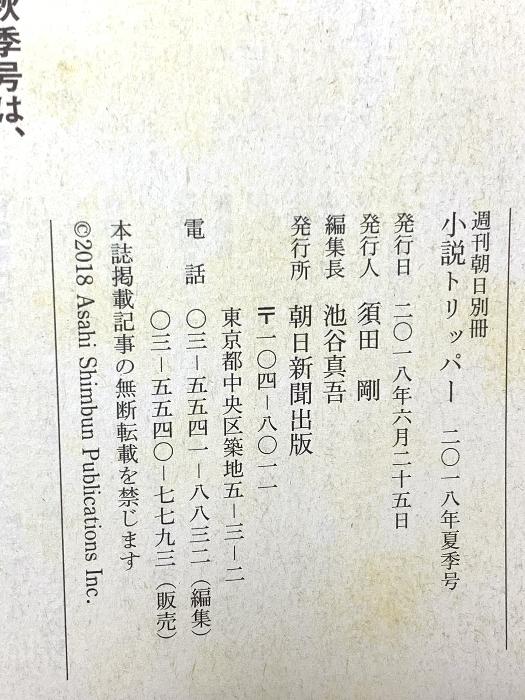 週刊朝日別冊
小説トリッパー　二〇一八年夏季号
発行日　二〇一八年六月二十五日
発行人　須田　剛
編集長　池谷真吾
発行所　朝日新聞出版
〒一〇四－八〇一一
東京都中央区築地五－三－二
電　話　〇三－五五四一－八八三二（編集）
〇三－五五四〇－七七九三（販売）
本誌掲載記事の無断転載を禁じます
©2018 Asahi Shimbun Publications Inc.
秋季号は、